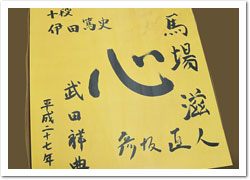 馬場滋人
彦坂直人
心
十段
伊田篤史
武田祥典
平成二十七年